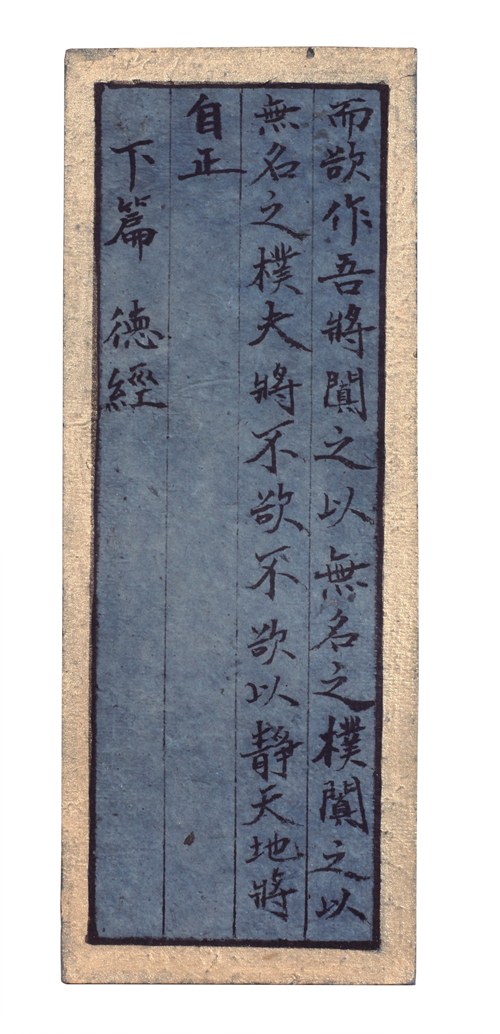 而欲作吾將闐之以無名之樸闐之以
無名之樸夫將不欲不欲以靜天地將
自正
下篇 徳經